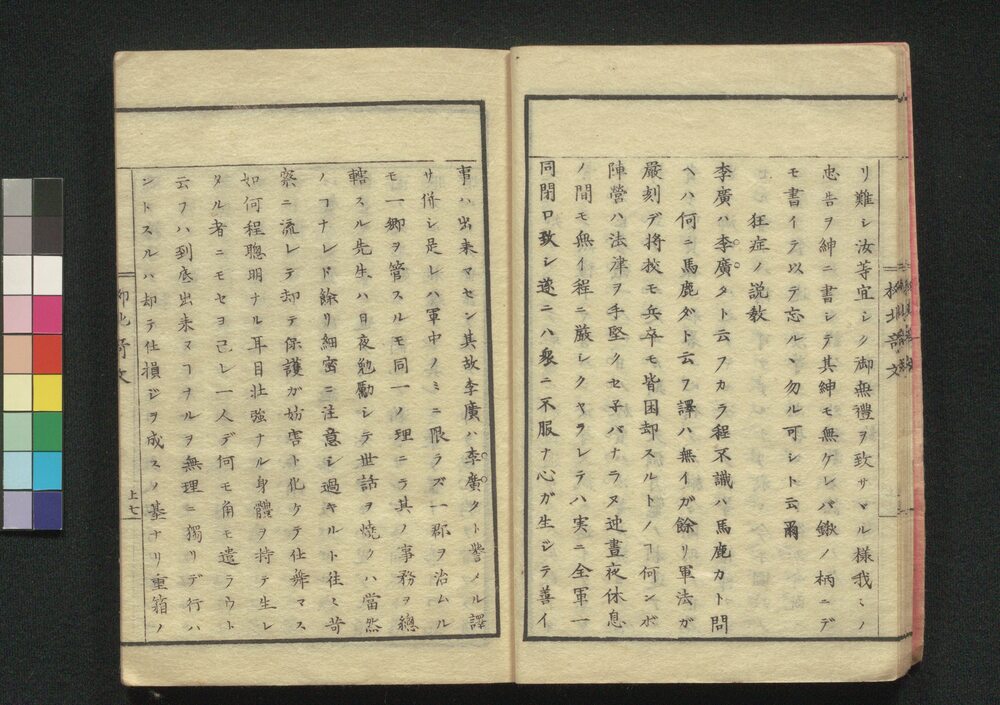 リ難シ汝等宜シク御無禮ヲ致サマル様我ミノ
忠告ヲ紳ニ書シテ其紳モ無ケレバ鍬ノ柄ニデ
モ書イテ以テ忘ルヽ勿ル可シト云爾
狂症ノ説教
李廣ハ李廣タト云フカラ程不識ハ馬鹿カト問
ヘハ何ニ馬鹿ダト云フ譯ハ無イガ餘リ軍法ガ
嚴刻デ将校モ兵卒モ皆困却スルトノヿ何ンボ
陣營ハ法津ヲ手堅クセ子バナラヌ迚晝夜休息
ノ間モ無イ程ニ嚴シクヤラレテハ実ニ全軍一
同閉口致シ遂ニハ衆ニ不服ナ心ガ生ジテ善イ
事ハ出来マセン其故李廣ハ李廣タト譽メル譯
サ併シ是レハ軍中ノミニ限ラズ一郡ヲ治ムル
モ一郷ヲ管スルモ同一ノ理ニラ其ノ事務ヲ總
轄スル先生ハ日夜勉勵シテ世話ヲ焼クハ當然
ノヿナレド餘リ細密ニ注意シ過キルト往ミ苛
察ニ流レテ却テ保護ガ妨害ト化ケテ仕舞マス
如何程聰明ナル耳目壮強ナル身體ヲ持テ生レ
タル者ニモセヨ己レ一人デ何モ角モ遣ラウト
云フハ到底出来ヌヿナルヲ無理ニ獨リデ行ハ
ントスルハ却テ仕損ジヲ成スノ基ナリ重箱ノ
上七